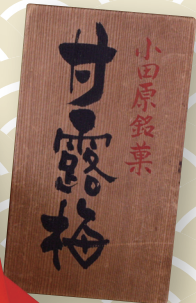 小田原銘菓
甘露梅